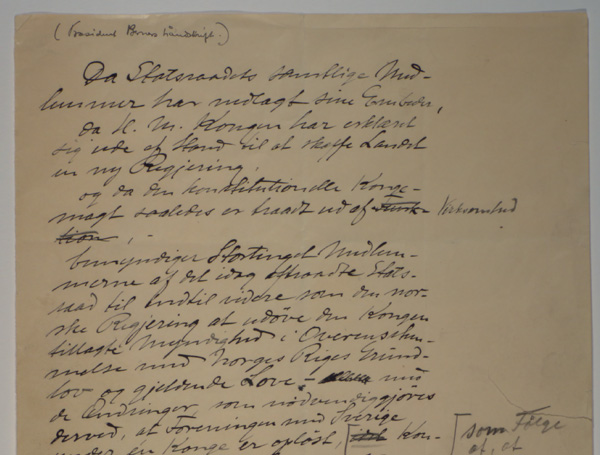 (Præsident Berners håndskrift.)
Da Statsraadets samtlige Med-
lemmer har nedlagt sine Embeder,
da H. M. Kongen har erklæret
sig ude af Stand til at skaffe Landet
en ny Regjering,
og da den konstitutionelle Konge-
magt saaledes er traadt ud af Funk- Virksomhed
tion, -
bemyndiger Stortinget Medlem-
merne af det idag aftraadte Stats-
raad til indtil videre som den nor-
ske Regjering at udöve den Kongen
tillagte Myndighed i Overensstem-
melse med Norges Riges Grund-
lov og gjeldende Love, - med
de Ændringer, som nødvendiggjöres
derved, at Foreningen med Sverige
under én Konge er oplöst, [idet Kon- [som Følge
af, at